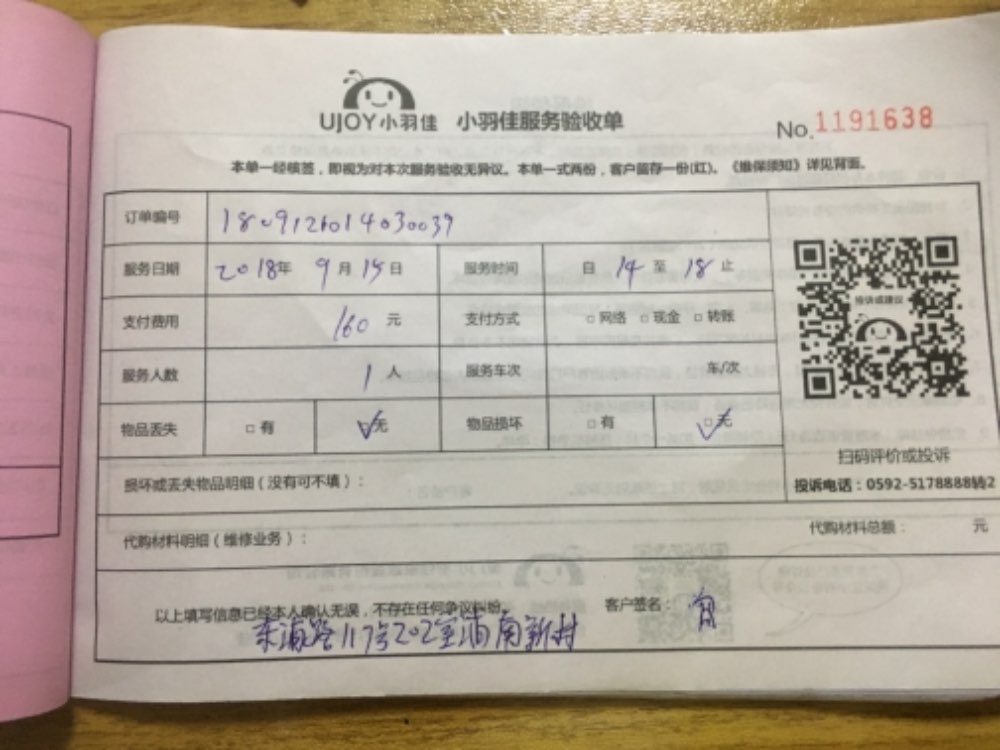 UJOY小羽佳 小羽佳服务验收单
No.1191638
本单一经核签，即视为对本次服务验收无异议。本单一式两份，客户留存一份(红)。《维保须知》详见背面。
订单编号 1809126014030039
服务日期 2018年 9月15日 服务时间 自 14 至 18 止
投诉或建议
支付费用 160 元 支付方式 □网络 □现金 □转账
服务人数 1 人 服务车次 车/次
物品丢失 □有 ☑无 物品损坏 □有 ☑无
扫码评价或投诉
投诉电话：0592-5178888转2
损坏或丢失物品明细（没有可不填）：
代购材料明细（维修业务）： 代购材料总额： 元
以上填写信息已经本人确认无误，不存在任何争议纠纷。 客户签名：
东浦路117号202室浦南新村